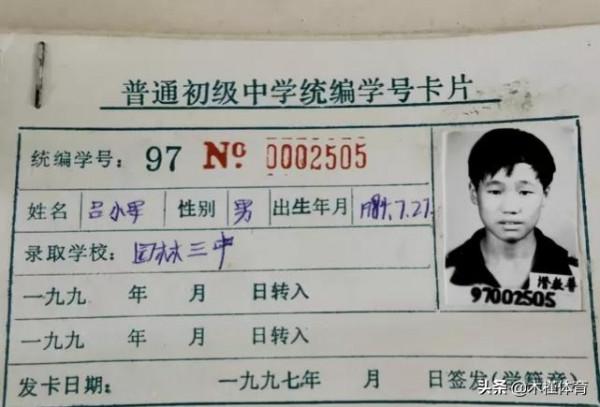 普通初级中学统编学号卡片
统编学号: 97 No 0002505
姓名 吕小军 性别 男 出生年月 1984.7.27
录取学校: 园林三中
一九九 年 月 日转入
一九九 年 月 日转入
发卡日期: 一九九七年 月 日签发(学籍章)
97002505
头条 @木恒体育